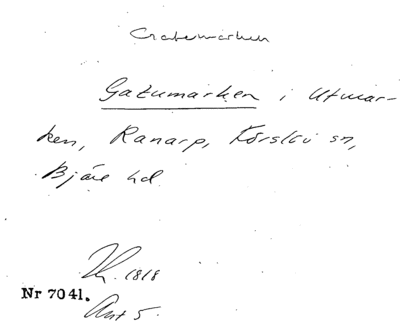 Gatumarken
Gatumarken i Utmar-
ken, Ranarp, Förslöv sn,
Bjäre hd
1818
Nr 7041.
Akt 5.